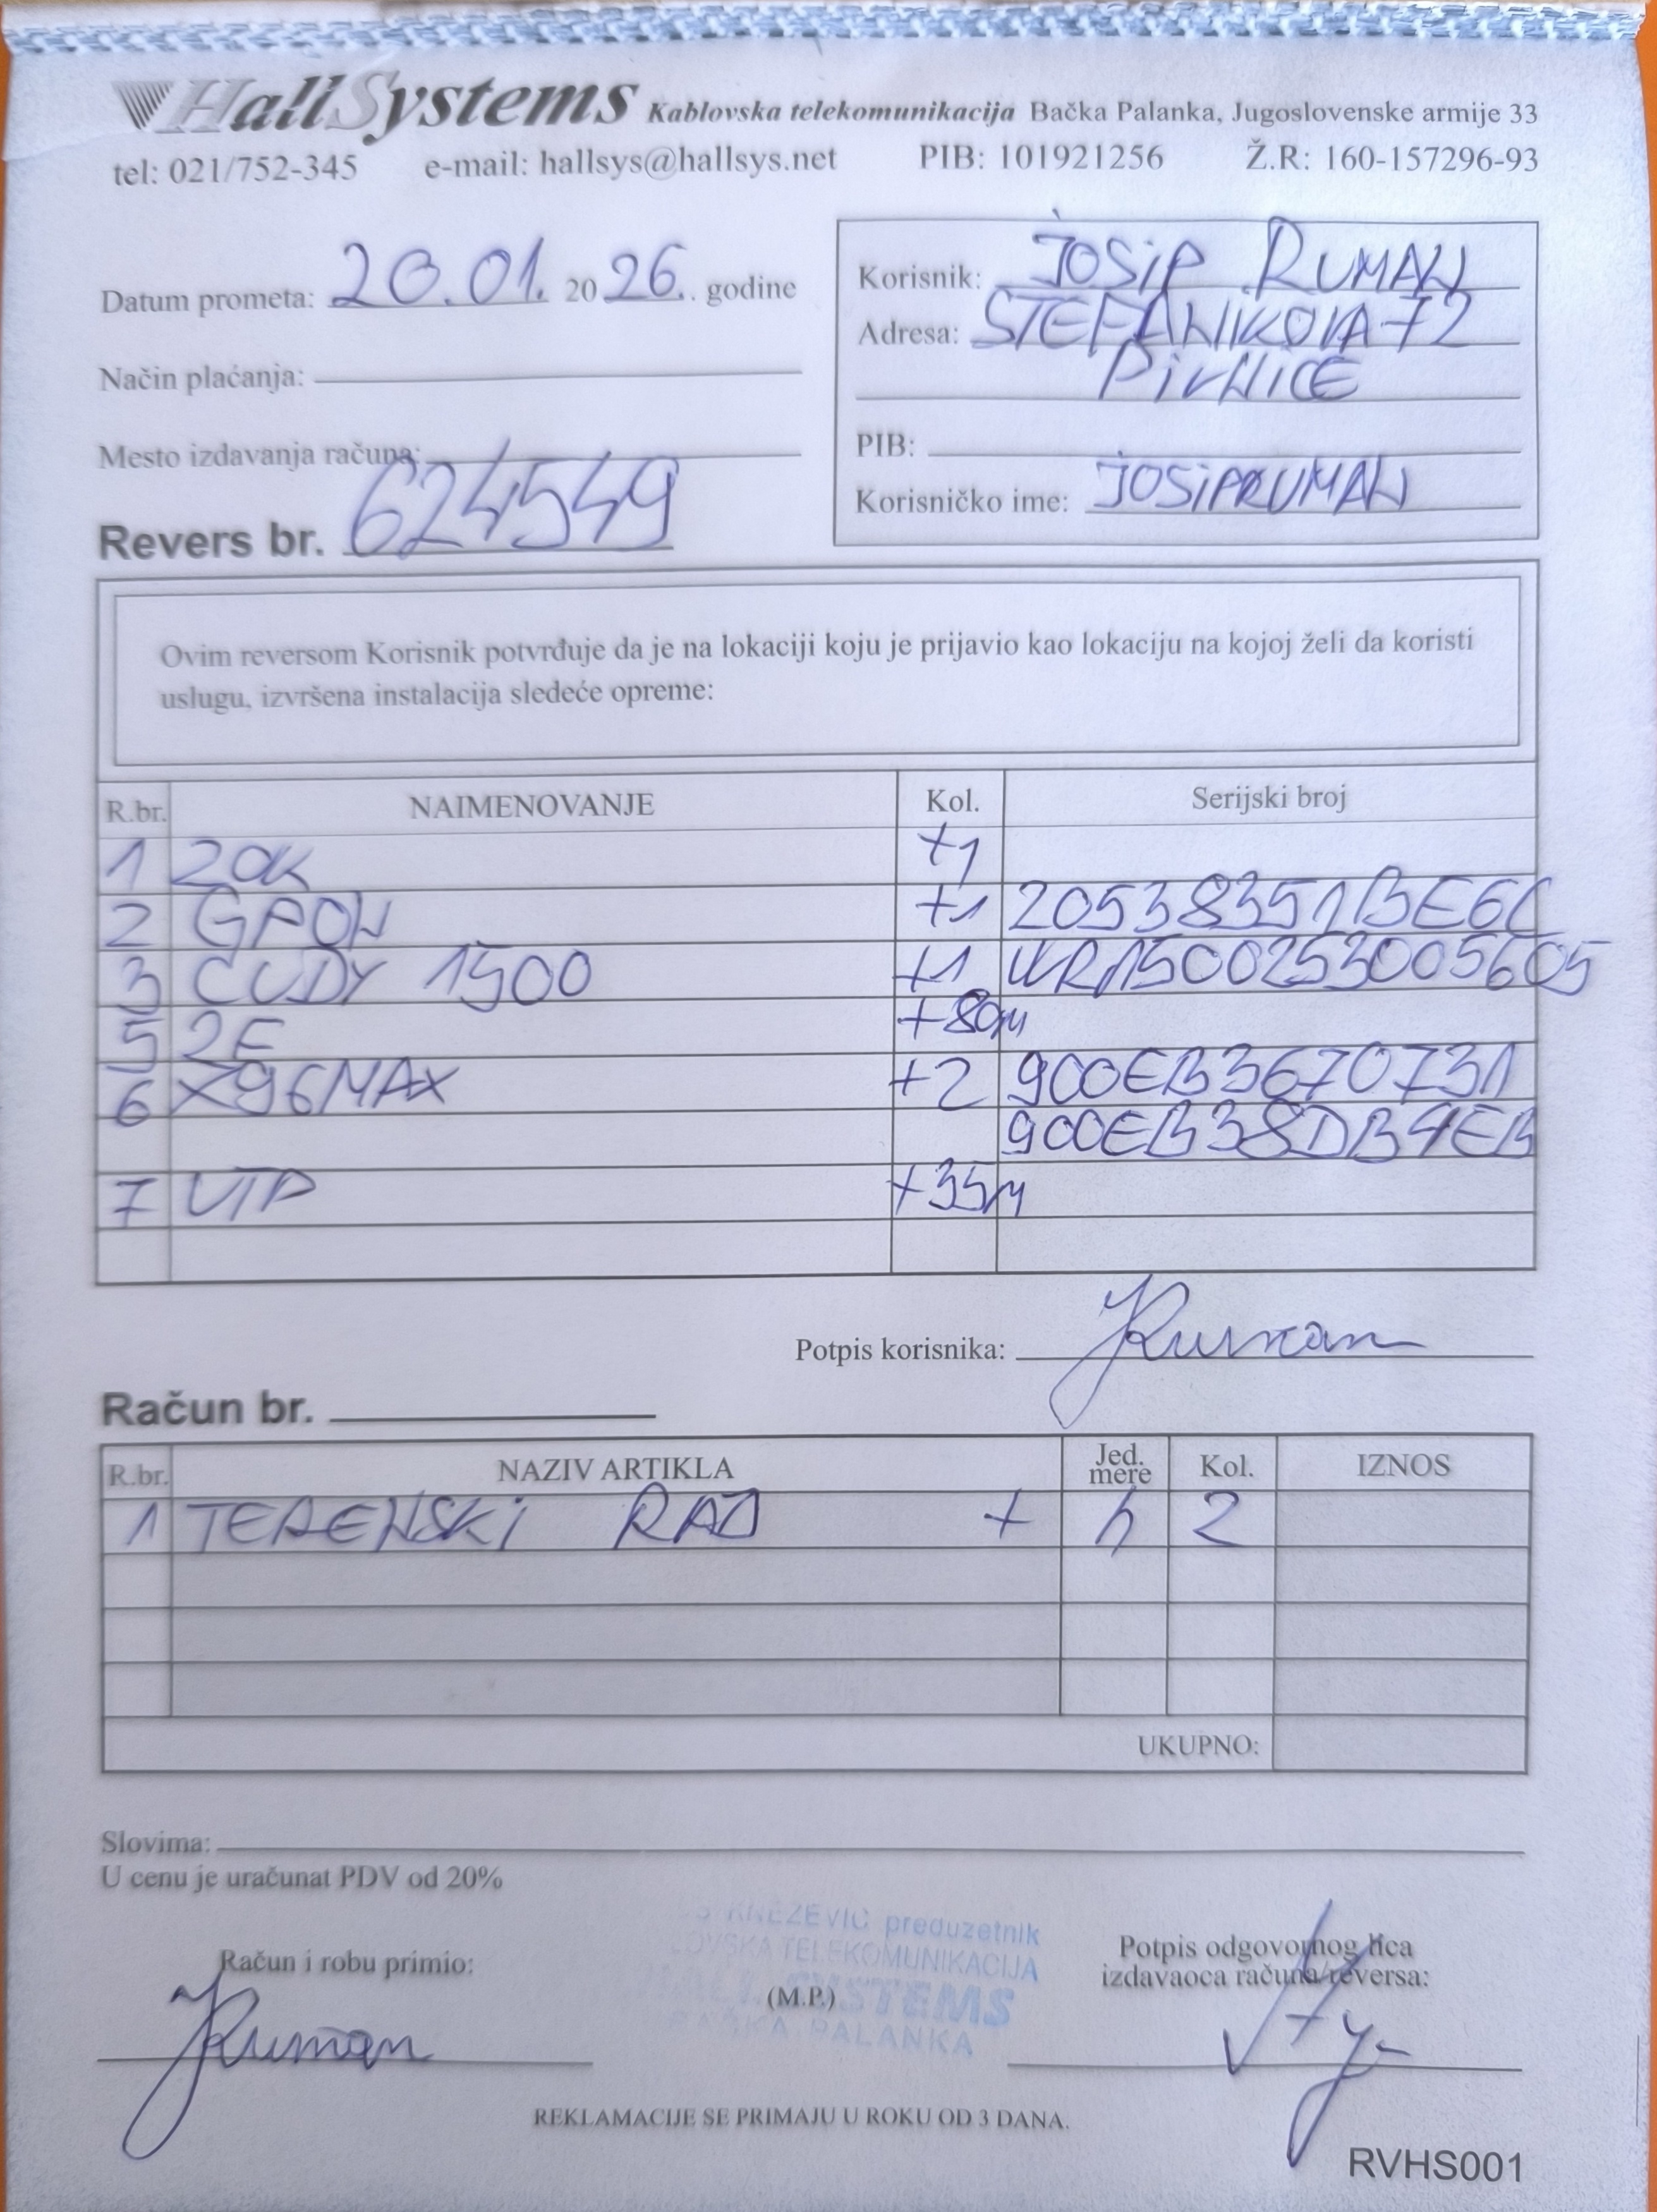 HallSystems Kablovska telekomunikacija Bačka Palanka, Jugoslovenske armije 33
tel: 021/752-345 e-mail: hallsys@hallsys.net PIB: 101921256 Ž.R: 160-157296-93
Datum prometa: 20.01. 2026. godine
Način plaćanja:
Mesto izdavanja računa:
Revers br. 624549
Korisnik: JOSiP RUMAN
Adresa: STEFANIKOVA 72
PiVNICE
PIB:
Korisničko ime: JOSiPRUMAN
Ovim reversom Korisnik potvrđuje da je na lokaciji koju je prijavio kao lokaciju na kojoj želi da koristi
uslugu, izvršena instalacija sledeće opreme:
R.br. NAIMENOVANJE Kol. Serijski broj
1 ZOK +1
2 GPON +1 20538351BE6C
3 CUDY 1500 +1 WR1500253005605
5 2E +80m
6 X96MAX +2 900EB3670731
900EB38DB4EB
7 UTP +35m
Potpis korisnika: JRuman
Račun br.
R.br. NAZIV ARTIKLA Jed. mere Kol. IZNOS
1 TERENSKi RAD + h 2
UKUPNO:
Slovima:
U cenu je uračunat PDV od 20%
Račun i robu primio:
JRuman
KNEZEVIC preduzetnik
TELEKOMUNIKACIJA
SYSTEMS
PALANKA
(M.P.)
Potpis odgovornog lica
izdavaoca računa/reversa:
REKLAMACIJE SE PRIMAJU U ROKU OD 3 DANA.
RVHS001